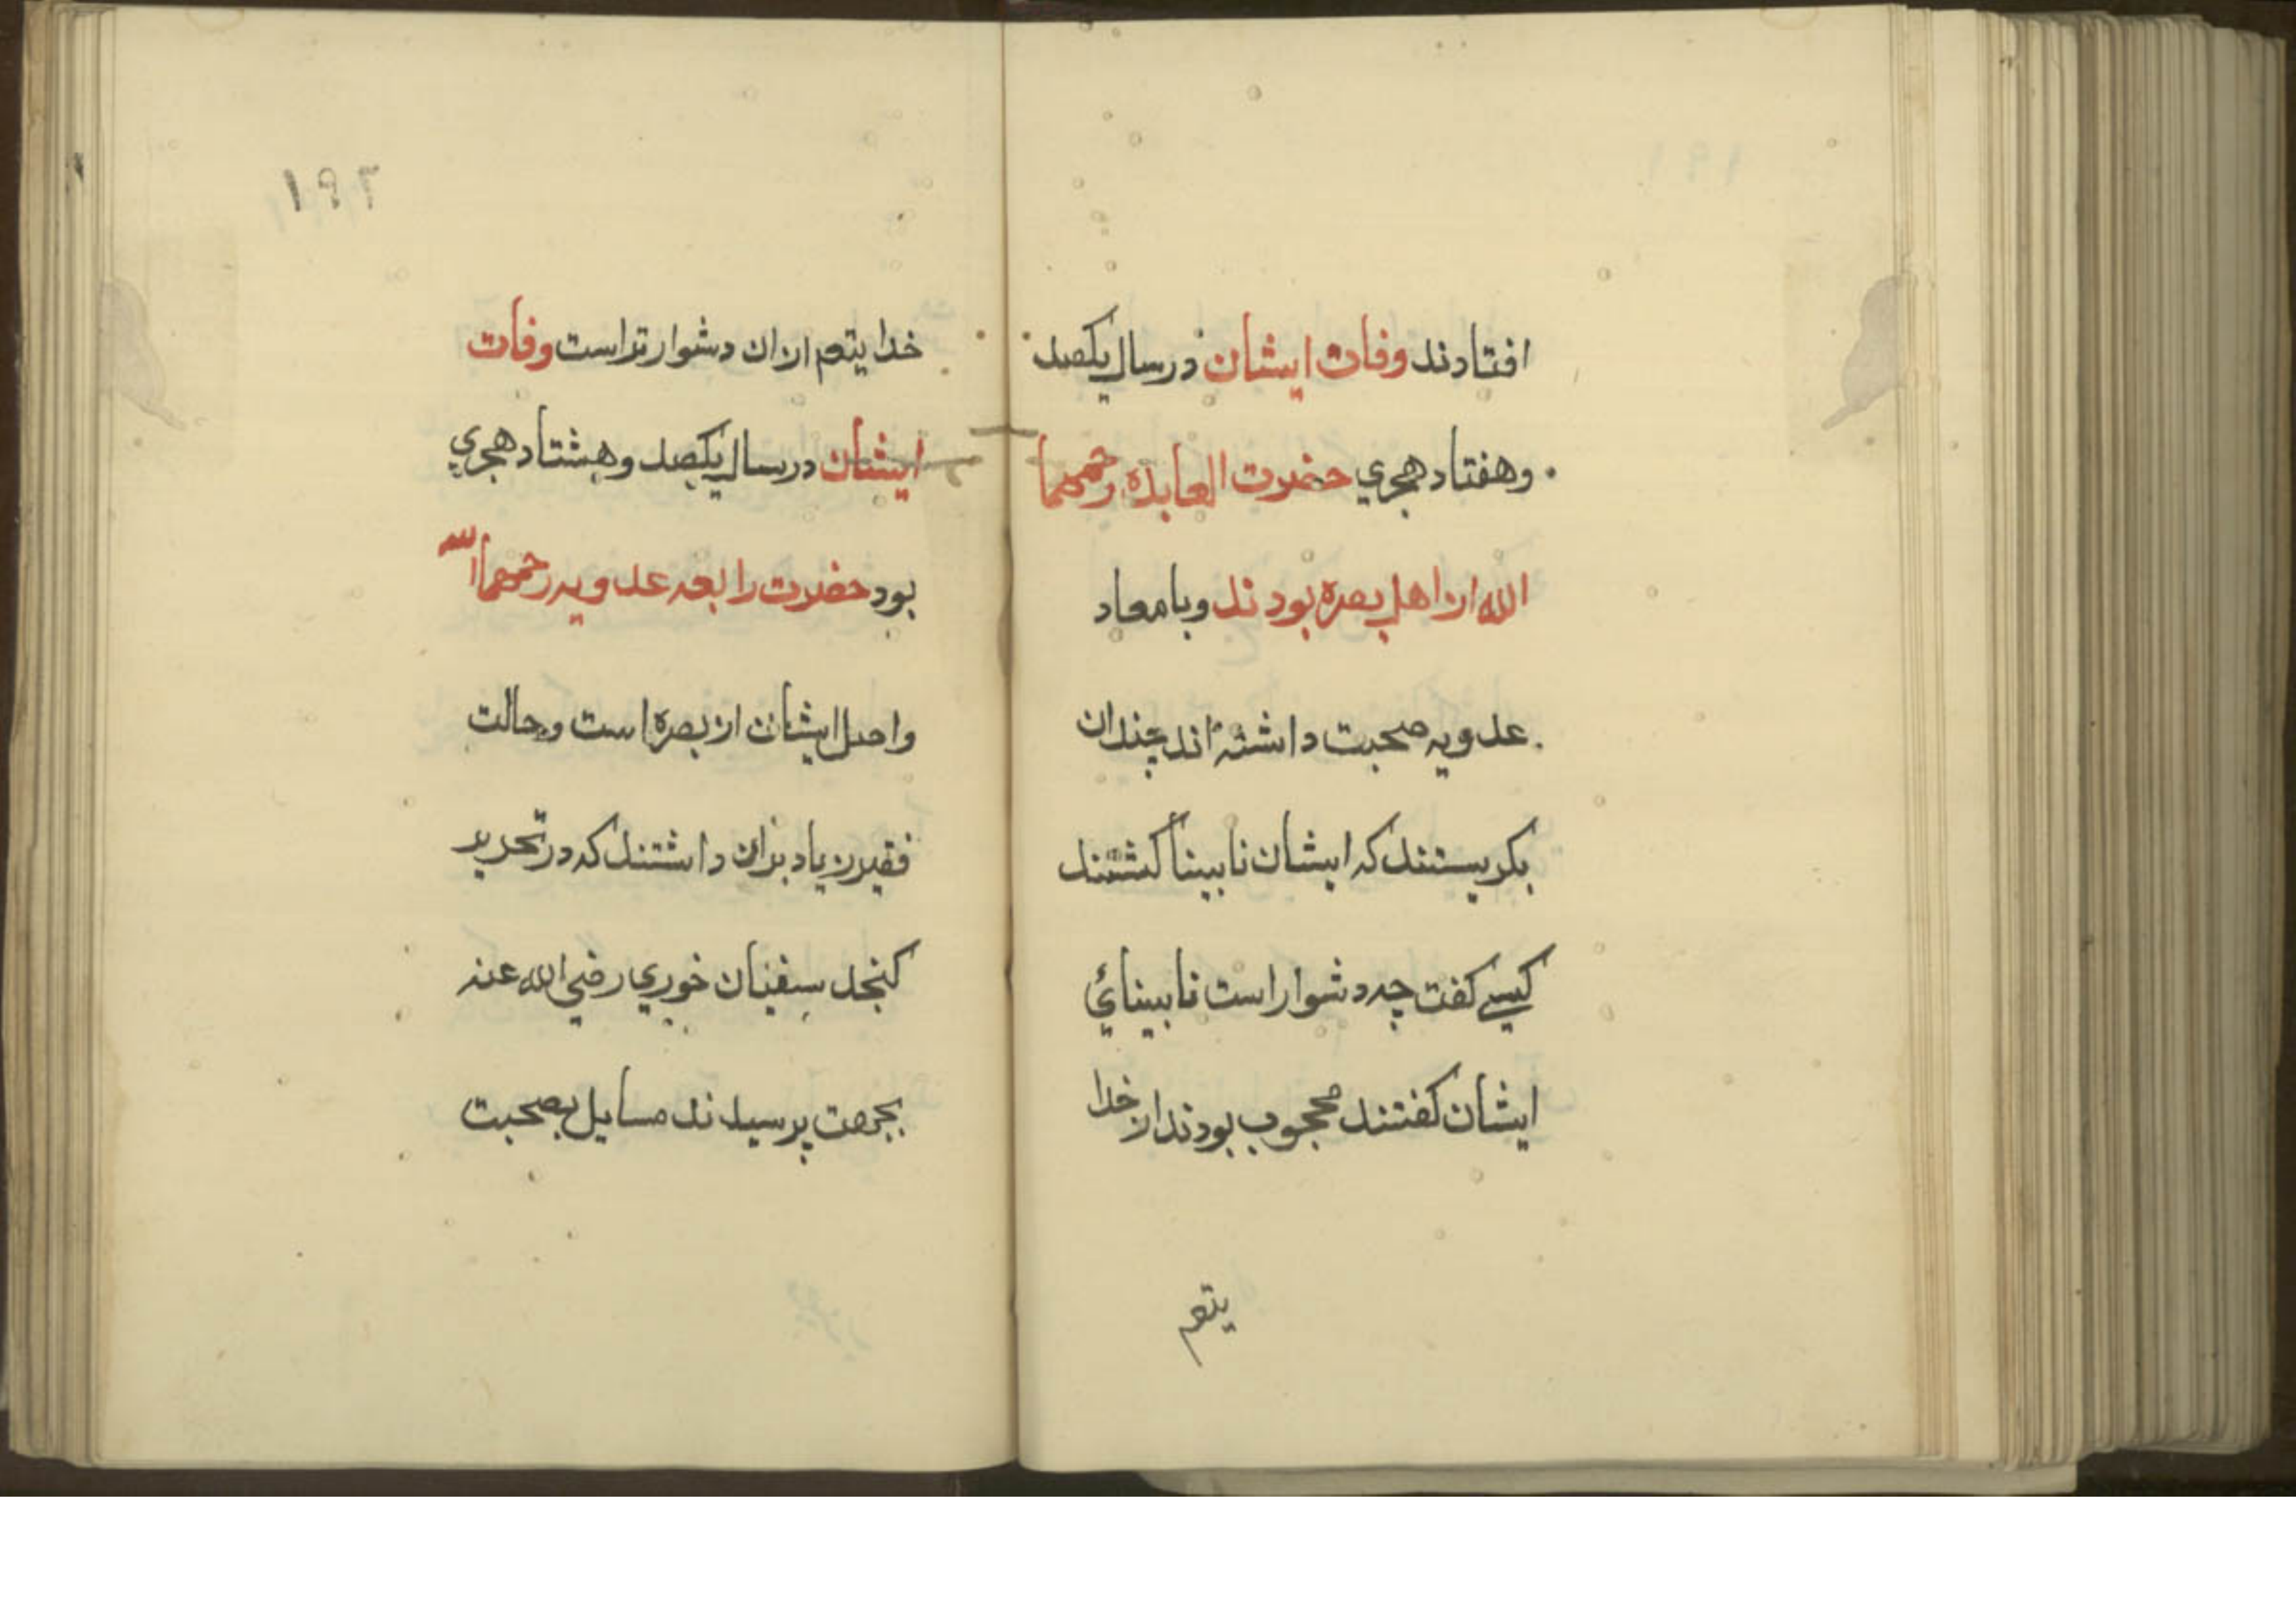 افتادند وفات ایشان در سال یکصد
وهفتاد هجري حضرت العابده رحمهما
الله از اهل بصره بودند وبا معاد
عدویه صحبت داشته اند چندان
بکریستند که ایشان نابینا کشتند
کیسے کفت چه دشوار است نابینائي
ایشان کفتند محجوب بودند از خدا
یتعم
۱۹۲
خدا یتعم ازان دشوار تر است وفات
ایشان در سال یکصد وهشتاد هجري
بود حضرت رابعه عدویه رحمهما الله
واصل ایشان از بصره است وحالت
فقیر زیاد بران داشتند که در تحریر
کنجد سفیان خوري رضي الله عنه
بجهت پرسیدند مسایل بصحبت